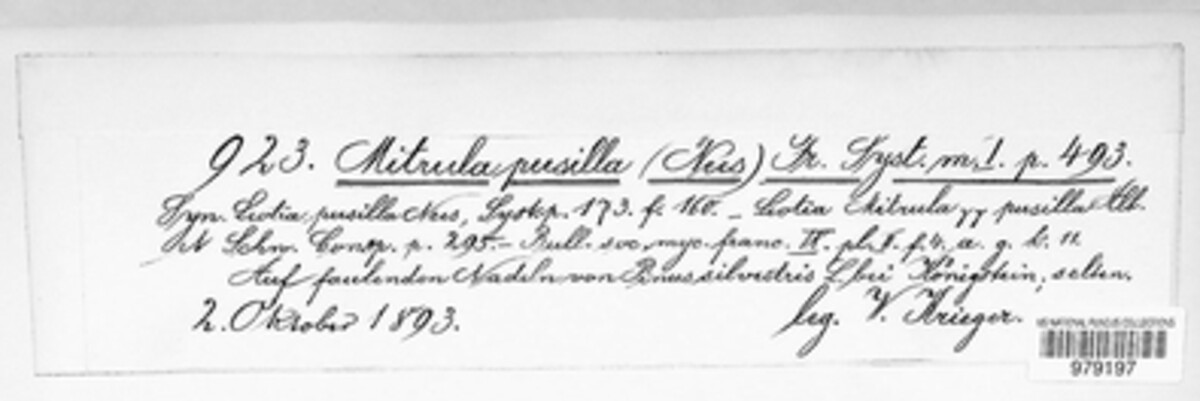 923. Mitrula pusilla (Nees) Fr. Syst. m. I. p. 493.
Syn. Leotia pusilla Nees, Syst. p. 173. f. 160. – Leotia Mitrula γγ pusilla Alb.
et Schw. Consp. p. 295. – Bull. soc. myc. franc. II. pl. f. 4. a. g. h. 11.
Auf faulenden Nadeln von Pinus silvestris L. bei Königstein, selten.
2. Oktober 1893. leg. W. Krieger.
US NATIONAL FUNGUS COLLECTIONS
979197